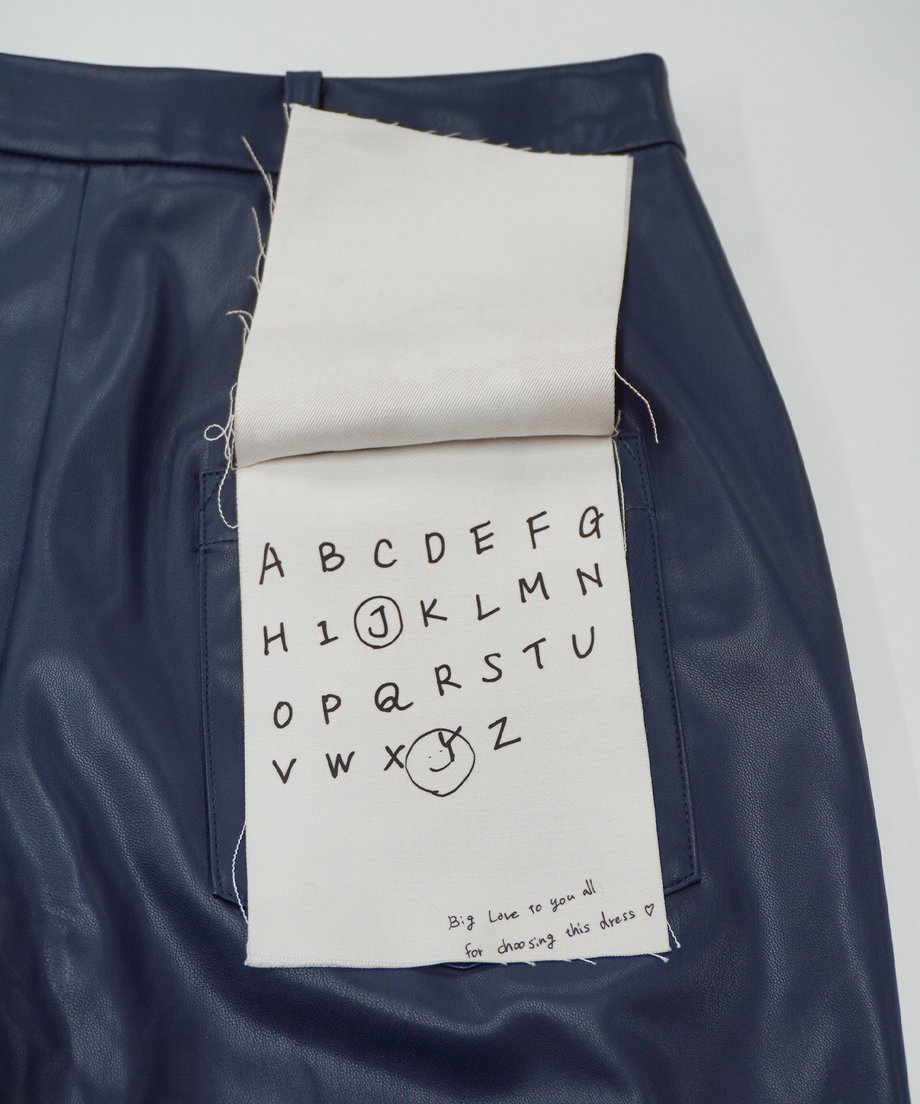 A B C D E F G
H I J K L M N
O P Q R S T U
V W X Y Z
Big Love to you all
for choosing this dress ♡